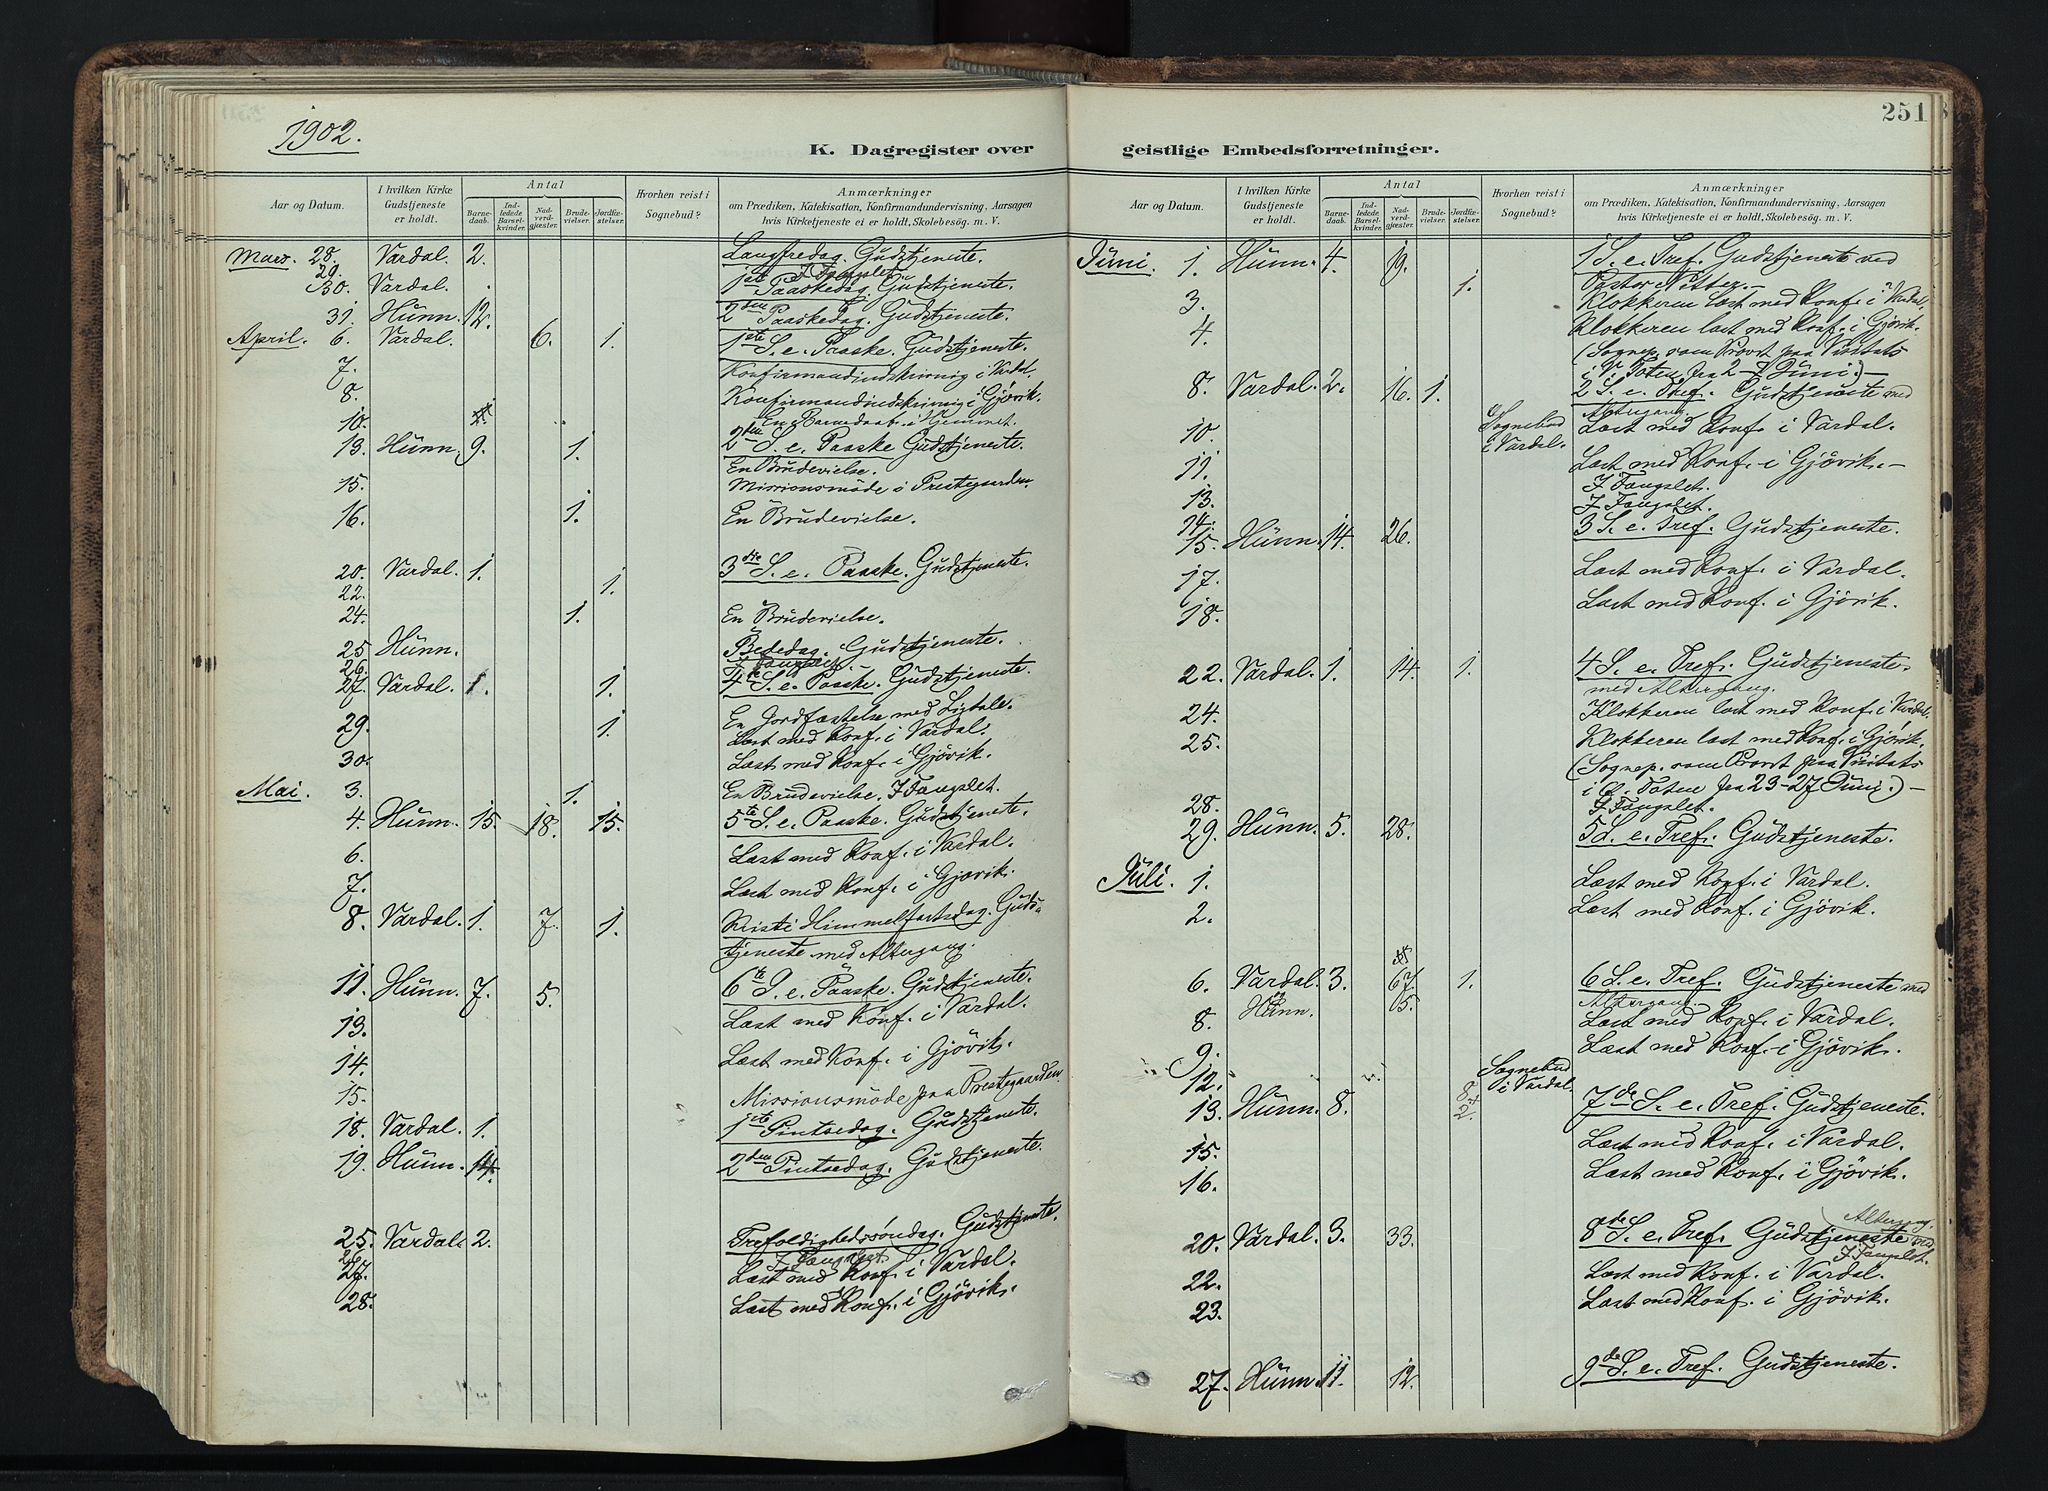 1902.
K. Dagregister over
Aar og Datum. I hvilken Kirke Gudstjeneste er holdt. Antal Barnedaab. Indledede Barselkvinder. Nadverdgjæster. Brudevielser. Jordfæstelser. Hvorhen reist i Sognebud? Anmærkninger om Prædiken, Katekisation, Konfirmandundervisning, Aarsagen hvis Kirketjeneste ei er holdt, Skolebesög. m. V.
Mars. 28. Vardal. 2. Langfredag. Gudstjeneste.
29. I Fangslet.
30. Vardal. 1ste Paaskedag. Gudstjeneste.
31. Hunn. 12. 2den Paaskedag. Gudstjeneste.
April. 6. Vardal. 6. 1. 1ste S. e. Paaske. Gudstjeneste.
7. Konfirmandindskrivnig i Vardal.
8. Konfirmandindskrivnig i Gjövik.
10. En Barnedaab i Hjemmet.
13. Hunn. 9. 1. 2den S. e. Paaske Gudstjeneste.
En Brudevielse.
15. Missionsmöde i Prestegaarden.
16. 1. En Brudevielse.
20. Vardal. 1. 3die S. e. Paaske. Gudstjeneste.
22. 1.
24. 1. En Brudevielse.
25. Hunn. Bededag. Gudstjeneste.
26. I Fangslet.
27. Vardal. 1. 1. 4de S. e. Paaske. Gudstjeneste.
29. 1. En Jordfæstelse med Ligtale.
Læst med Konf. i Vardal.
30. Læst med Konf. i Gjövik.
Mai. 3. 1. En Brudevielse. I Fangslet.
4. Hunn. 15. 18. 15. 5te S. e. Paaske. Gudstjeneste.
6. Læst med Konf. i Vardal.
7. Læst med Konf. i Gjövik.
8. Vardal. 1. 7. 1. Kristi Himmelfartsdag. Guds-
tjeneste med Altergang.
11. Hunn. 7. 5. 6te S. e. Paaske. Gudstjeneste.
13. Læst med Konf. i Vardal.
14. Læst med Konf. i Gjövik.
15. Missionsmöde paa Prestegaarden.
18. Vardal. 1. 1ste Pintsedag. Gudstjeneste.
19. Hunn. 14. 2den Pintsedag. Gudstjeneste.
25. Vardal. 2. Trefoldighedssöndag. Gudstjeneste.
26. I Fangslet
27. Læst med Konf. i Vardal.
28. Læst med Konf. i Gjövik.
251
geistlige Embedsforretninger.
Aar og Datum. I hvilken Kirke Gudstjeneste er holdt. Antal Barnedaab. Indledede Barselkvinder. Nadverdgjæster. Brudevielser. Jordfæstelser. Hvorhen reist i Sognebud? Anmærkninger om Prædiken, Katekisation, Konfirmandundervisning, Aarsagen hvis Kirketjeneste ei er holdt, Skolebesög. m. V.
Juni. 1. Hunn. 4. 19. 1. 1 S. e. Tref. Gudstjeneste ved
Pastor
3. Klokkeren læst med Konf. i Vardal.
4. Klokkeren læst med Konf. i Gjövik.
(Sognep. som Provst paa Visitats
i V. Toten fra 2-7 Juni.) -
8. Vardal. 2. 16. 1. 2 S. e. Tref. Gudstjeneste med
Altergang.
10. Sognebud i Vardal. Læst med Konf. i Vardal.
11. Læst med Konf. i Gjövik. -
13. I Fangslet.
14. I Fangslet.
15. Hunn. 14. 26. 3 S. e. Tref. Gudstjeneste.
17. Læst med Konf. i Vardal.
18. Læst med Konf. i Gjövik.
22. Vardal. 1. 14. 1. 4 S. e. Tref. Gudstjeneste.
med Altergang.
24. Klokkeren læst med Konf. i Vardal.
25. Klokkeren læst med Konf. i Gjövik.
(Sognep. som Provst paa Visitats
i Ö. Toten fra 23-27 Juni.) -
28. I Fangslet.
29. Hunn. 5. 28. 5 S. e. Tref. Gudstjeneste.
Juli. 1. Læst med Konf. i Vardal.
2. Læst med Konf. i Gjövik.
6. Vardal. 3. 67. 1. 6 S. e. Tref. Gudstjeneste med
Altergang.
8. Hunn. 65. Læst med Konf. i Vardal.
9. Læst med Konf. i Gjövik.
12. Sognebud i Vardal.
13. Hunn. 8. 8+2. 7de S. e. Tref. Gudstjeneste.
15. Læst med Konf. i Vardal.
16. Læst med Konf. i Gjövik.
20. Vardal. 3. 33. 8de S. e. Tref. Gudstjeneste med Altergang.
I Fangslet.
22. Læst med Konf. i Vardal.
23. Læst med Konf. i Gjövik.
27. Hunn. 11. 12. 9de S. e. Tref. Gudstjeneste.